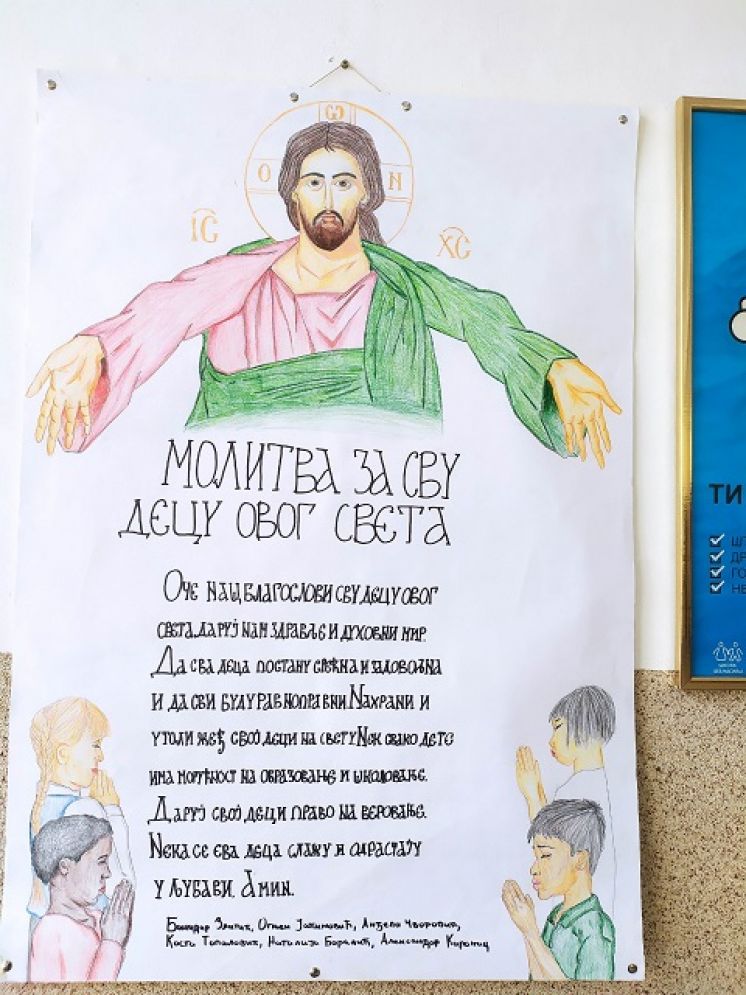 Ѡ
О Н
ІС ХС
МОЛИТВА ЗА СВУ
ДЕЦУ ОВОГ СВЕТА
Оче наш благослови сву децу овог
света, даруј нам здравље и духовни мир.
Да сва деца постану срећна и задовољна
и да сви буду равноправни. Нахрани и
утоли жеђ свој деци на свету. Нек свако дете
има могућност на образовање и школовање.
Даруј свој деци право на веровање.
Нека се сва деца слажу и одрастају
у љубави. Амин.
Огњен Јоксимовић, Анђела Чворовић,
Коста Топаловић, Наталија Александар
ТИ